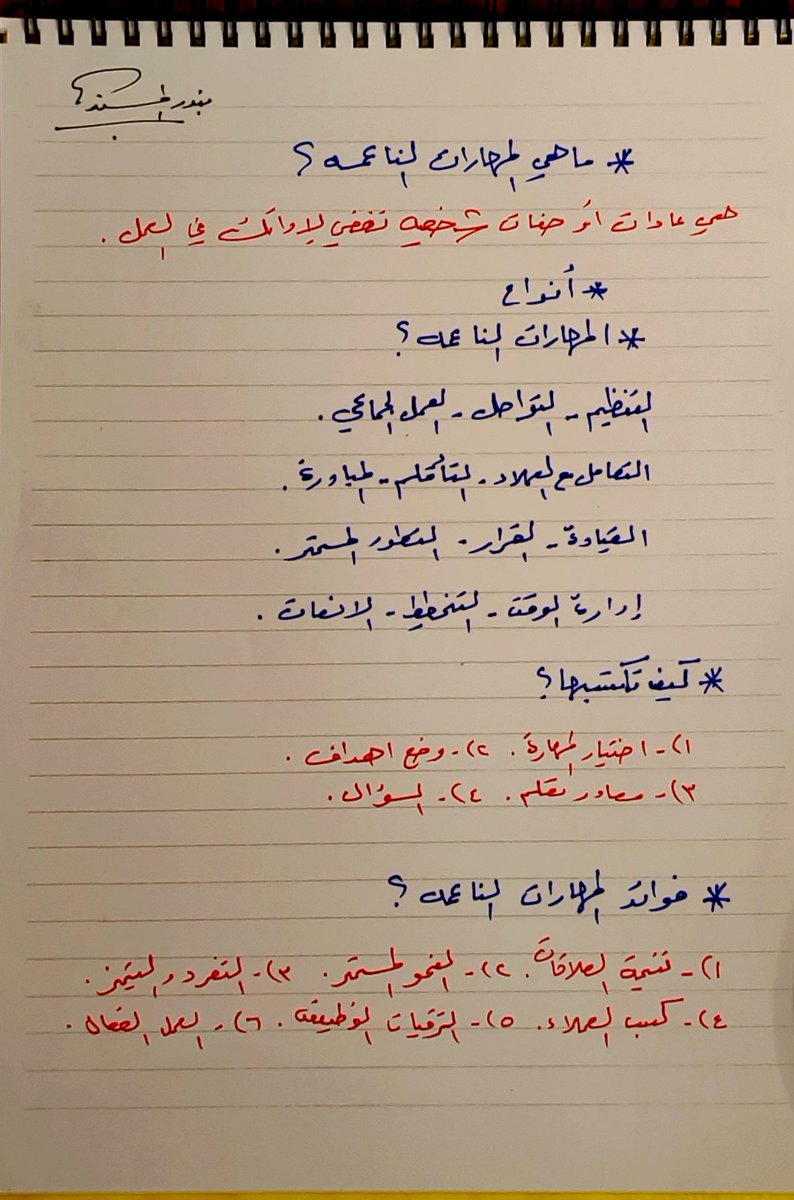 بندر
* ما هي المهارات الناعمه ؟
هي عادات أو صفات شخصيه تفضي لإدائك في العمل .
* أنواع
* المهارات الناعمه ؟
التنظيم - التواصل - العمل الجماعي .
التعامل مع العملاء - التأقلم - المبادرة .
القيادة - القرار - التطور المستمر .
إدارة الوقت - التخطيط - الانصات .
* كيف تكتسبها ؟
١) - اختيار المهارة . ٢) - وضع اهداف .
٣) - مصادر تعلم . ٤) - السؤال .
* فوائد المهارات الناعمه ؟
١) - تنمية العلاقات . ٢) - النمو المستمر . ٣) - التفرد والتميز .
٤) - كسب العملاء . ٥) - الترقيات الوظيفيه . ٦) - العمل الفعال .